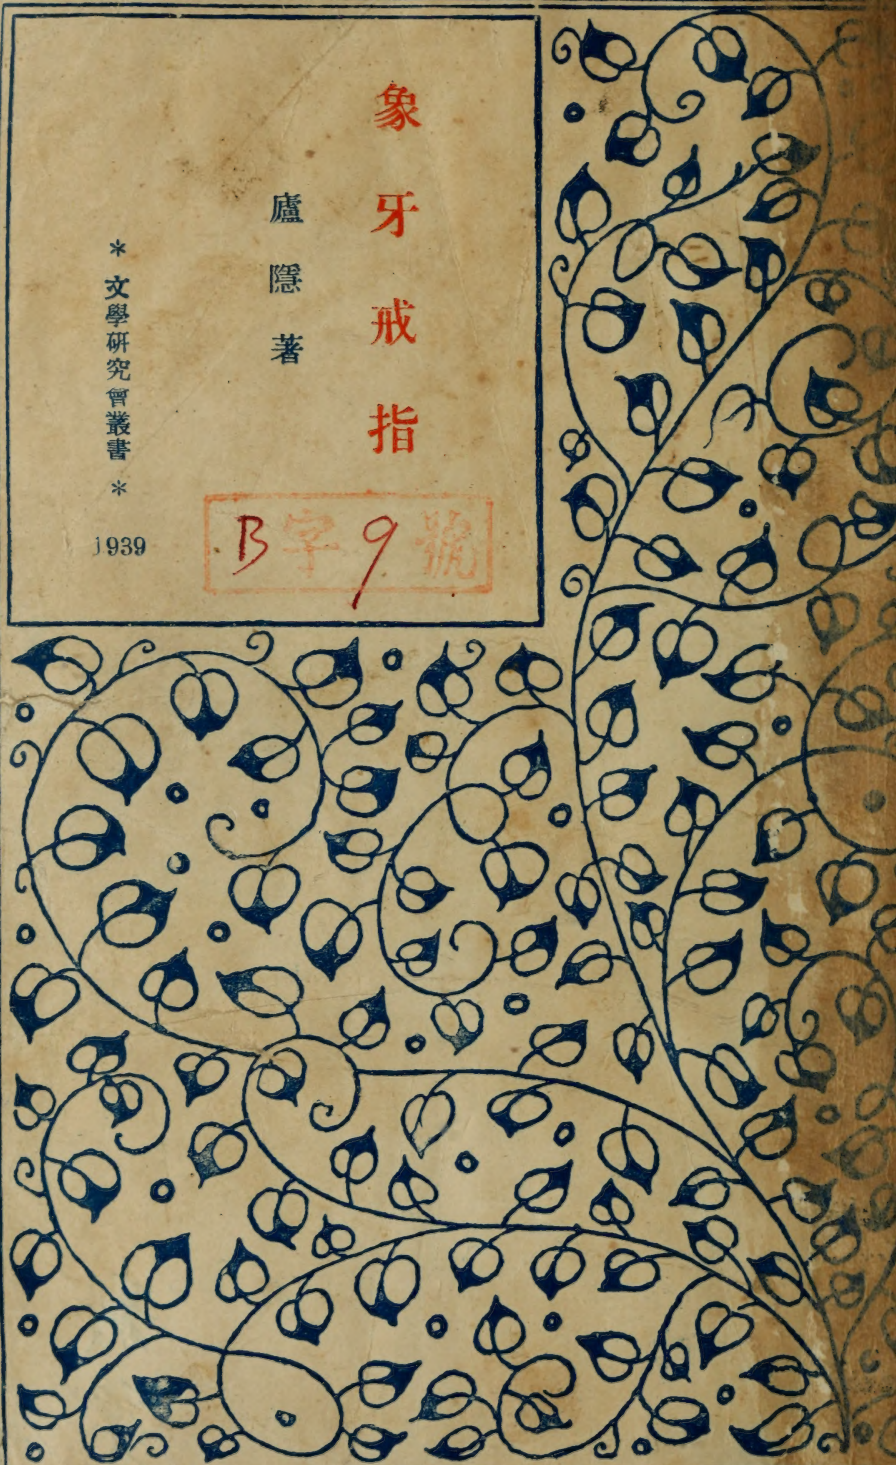 象牙戒指
廬隱著
＊文學研究會叢書＊
1939
B字9號